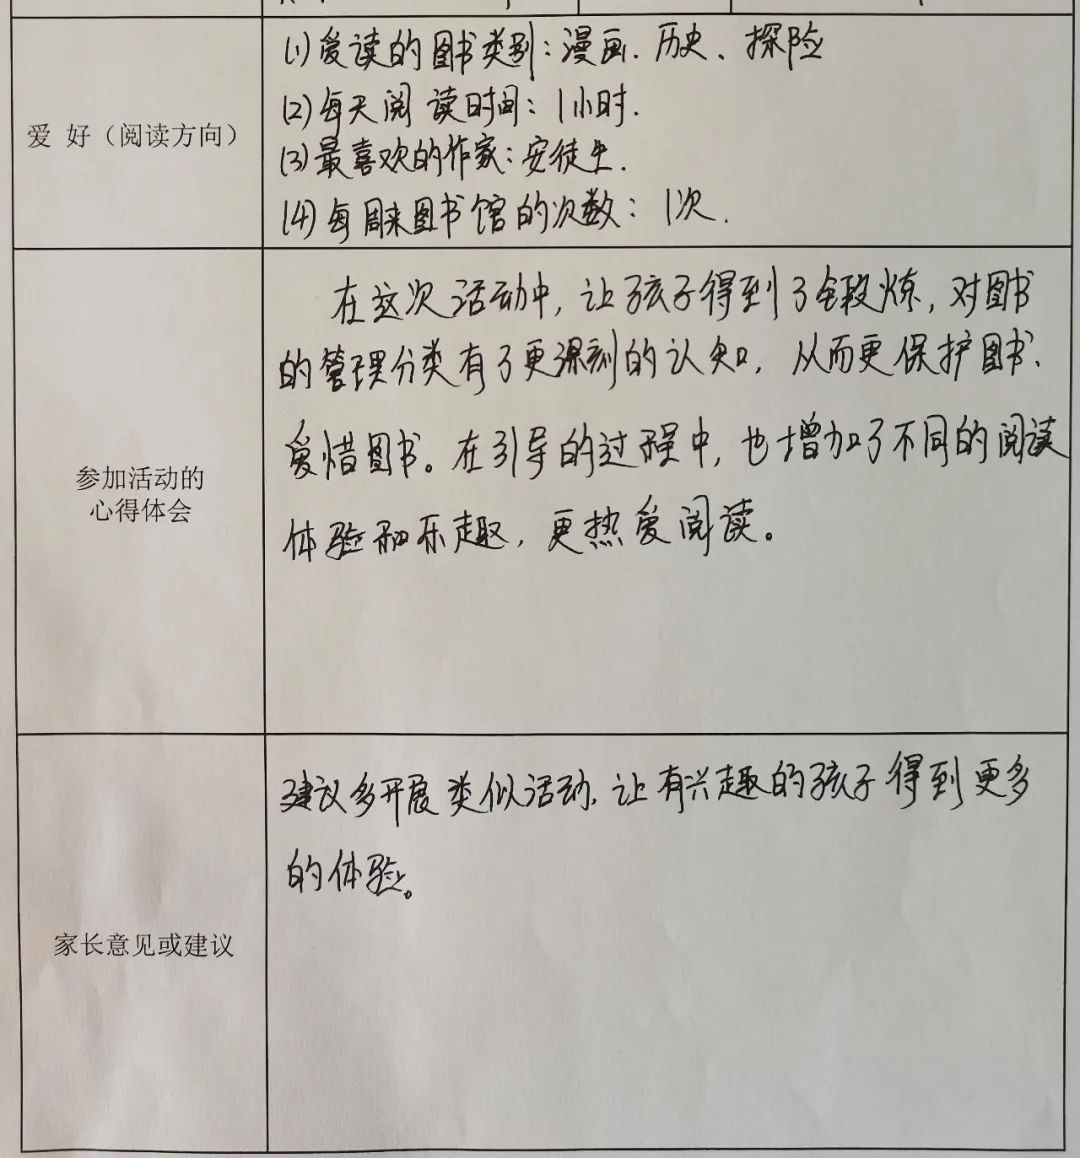 爱 好（阅读方向）
(1)爱读的图书类别：漫画、历史、探险
(2)每天阅读时间：1小时.
(3)最喜欢的作家：安徒生.
(4)每周来图书馆的次数：1次.
参加活动的
心得体会
在这次活动中，让孩子得到了锻炼，对图书
的管理分类有了更深刻的认知，从而更保护图书、
爱惜图书。在引导的过程中，也增加了不同的阅读
体验和乐趣，更热爱阅读。
家长意见或建议
建议多开展类似活动，让有兴趣的孩子得到更多
的体验。